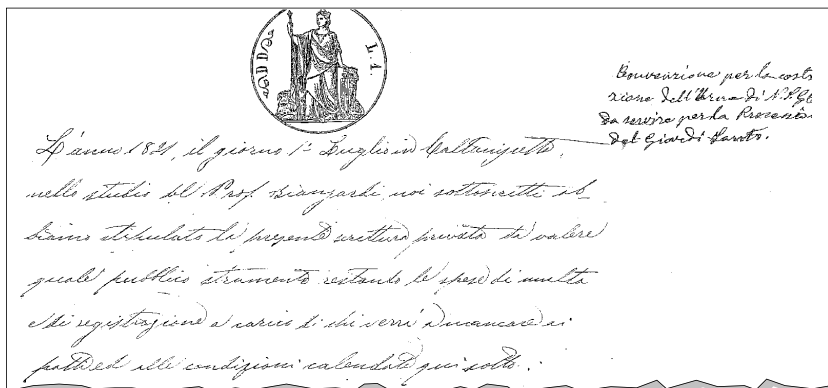 L. 1.
Convenzione per la costr
zione dell'Urna di N. S. G
da servire per la Processio
del Giovedì Santo.
L'anno 1891, il giorno 1º Luglio in Caltanissetta,
nello studio del Prof. Biangardi, noi sottoscritti ab_
biamo stipulato la presente scrittura privata da valere
quale pubblico strumento restando le spese di multa
e di registrazione a carico di chi verrà a mancare ai
patti ed alle condizioni calendate qui sotto.: